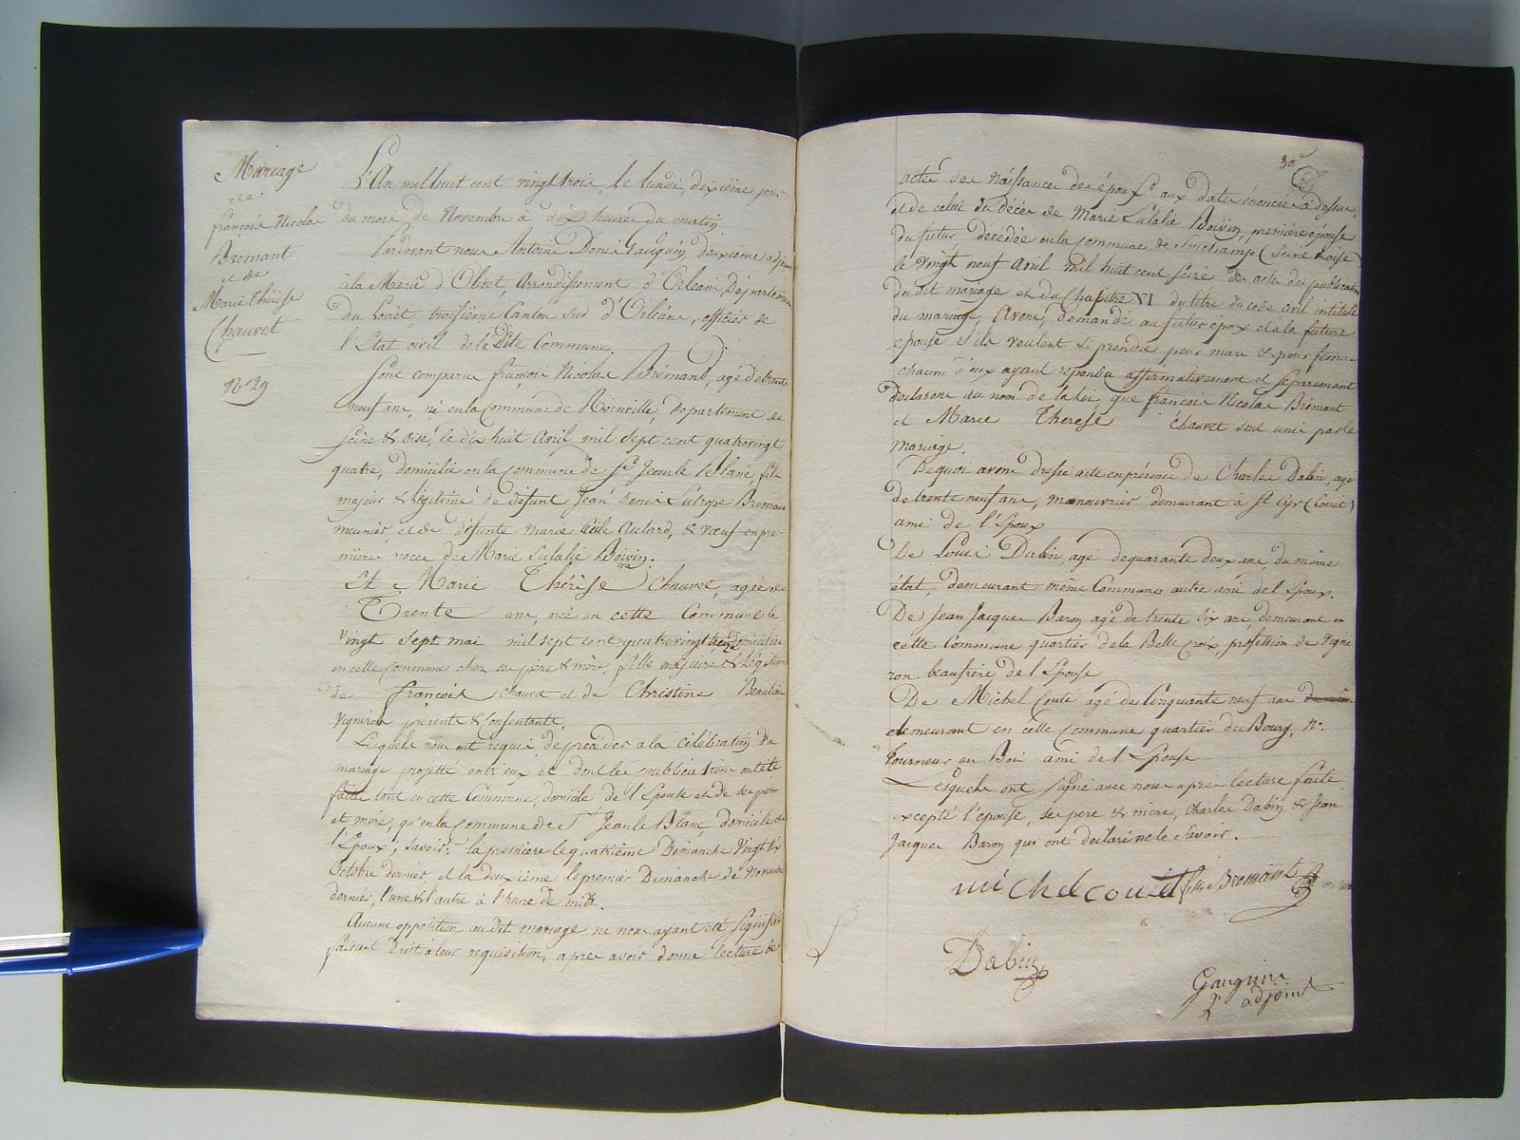 Mariage
de
françois Nicolas
Bremant
et de
Marie Thérèse
Chauvet
N° 29
L'An mil huit cent vingt trois, le lundi, dixième jour
du mois de Novembre à dix heures du matin.
Pardevant nous Antoine Denis Gauguin, deuxième adjoint
à la Mairie d'Olivet, Arrondissement d'Orléans, Département
du Loiret, troisième Canton Sud d'Orléans, officier de
l'Etat civil de la dite Commune.
Sont comparus françois Nicolas Brémant, agé de trente
neuf ans, né en la Commune de departement de
Seine & Oise, le dix huit Avril mil sept cent quatrevingt
quatre, domicilié en la Commune de St Jean le Blanc, fils
majeur & légitime de défunt Jean Bremant
meunier, et de défunte Marie & veuf en pre-
mières noces de Marie Eulalie Boivin.
Et Marie Thérèse Chauvet, agée de
Trente ans, née en cette Commune le
vingt sept mai mil sept cent quatrevingt treize domiciliée
en cette commune chez ses père & mère, fille majeure & légitime
de françois Chauvet et de Christine Beaulin
vignerons présents & consentants.
Lesquels nous ont requis de procéder a la célébration du
mariage projetté entr'eux et dont les publications ont été
faites tant en cette Commune, domicile de l'Epouse et de ses père
et mère, qu'en la Commune de St Jean le Blanc domicile de
l'Epoux, Savoir: la première le quatrième Dimanche Vingt six
Octobre dernier et la deuxième le premier Dimanche de Novembre
dernier, l'une & l'autre à l'heure de midi.
Aucune opposition au dit mariage ne nous ayant été signifiée
faisant droit à leur requisition, après avoir donné lecture des
30
actes de naissance des époux aux dates énoncées ci dessus,
et de celui du décès de Marie Eulalie Boivin, première épouse
du futur décédée en la commune de (Seine & oise)
le vingt neuf avril mil huit cent seize de acte des publications
du dit mariage et du Chapitre VI du titre du code civil intitulé
du mariage, Avons, demandé au futur époux et à la future
épouse s'ils veulent se prendre pour mari & pour femme
chacun d'eux ayant répondu affirmativement et separement
declarons au nom de la loi, que françois Nicolas Brémant
et Marie Therese Chauvet sont unis par le
Mariage.
De quoi avons dressé acte en présence de Charles Dabin, agé
de trente neuf ans, manouvrier demeurant à St Cyr (Loiret)
ami de l'Epoux
De Louis Dabin, agé de quarante deux ans, du même
état, demeurant même Commune autre ami de l'Epoux.
De Jean Jacques Baron agé de trente six ans, demeurant en
cette Commune quartier de la Belle croix, profession de vigne
ron beaufrère de l'Epouse
De Michel Couté agé de Cinquante neuf ans
demeurant en cette commune quartier du Bourg, N°
Tourneur en Bois ami de l'Epouse
Lesquels ont signé avec nous après lecture faite
excepté l'épouse, ses père & mère, Charles Dabin & Jean
Jacques Baron qui ont declaré ne le Savoir.
michel couté Bremant
Dabin
Gauguin
2e adjoint